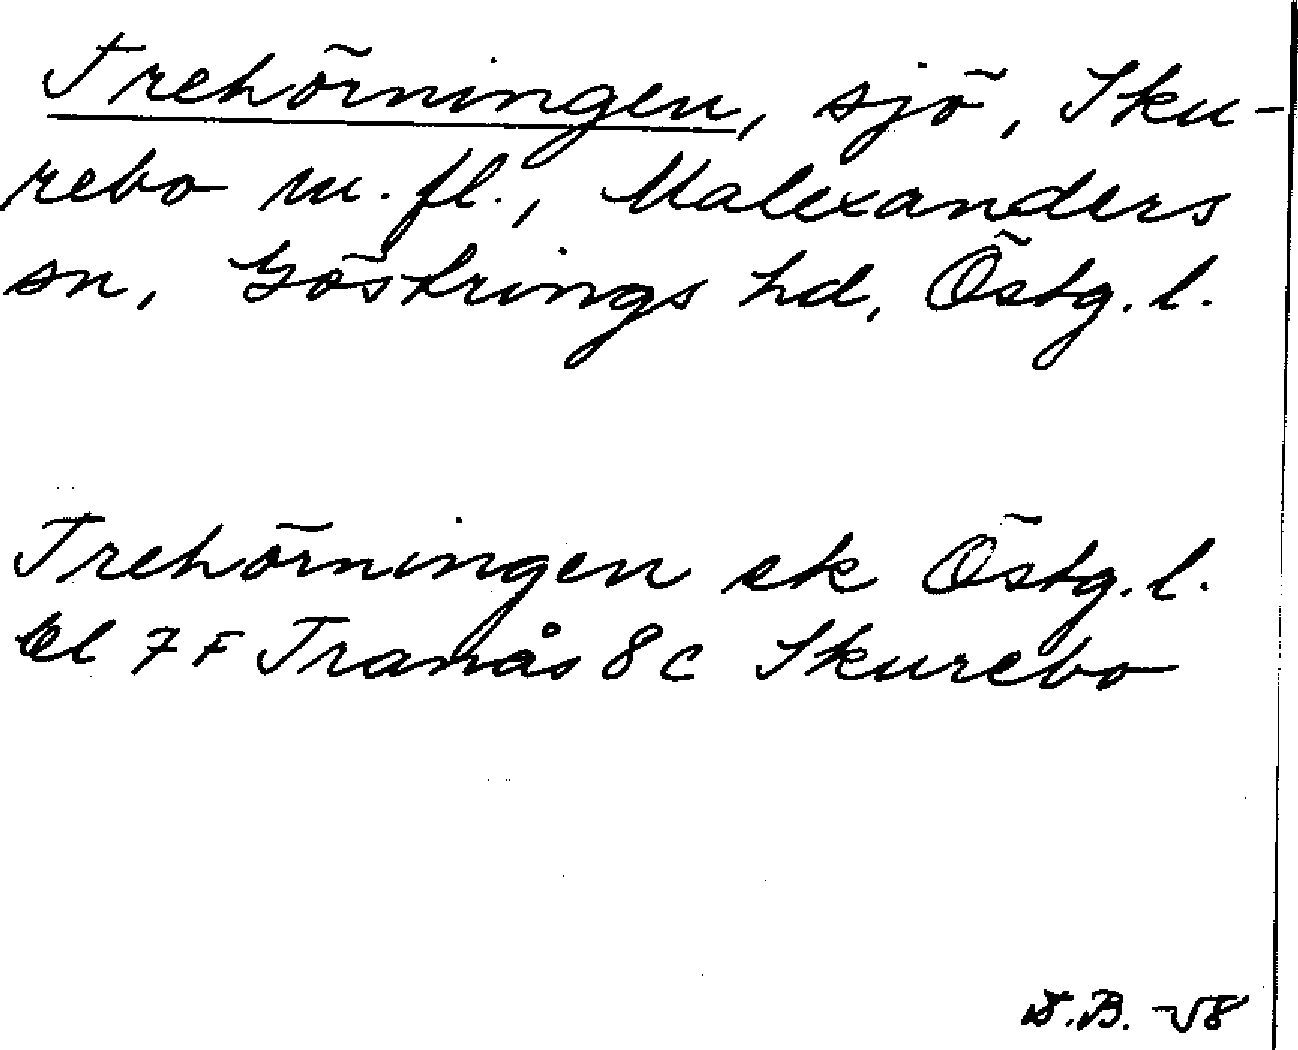 Trehörningen, sjö, Sku-
rebo m. fl., Malexanders
sn, Göstrings hd, Östg. l.
Trehörningen ek Östg. l.
bl 7 F Tranås 8 c Skurebo